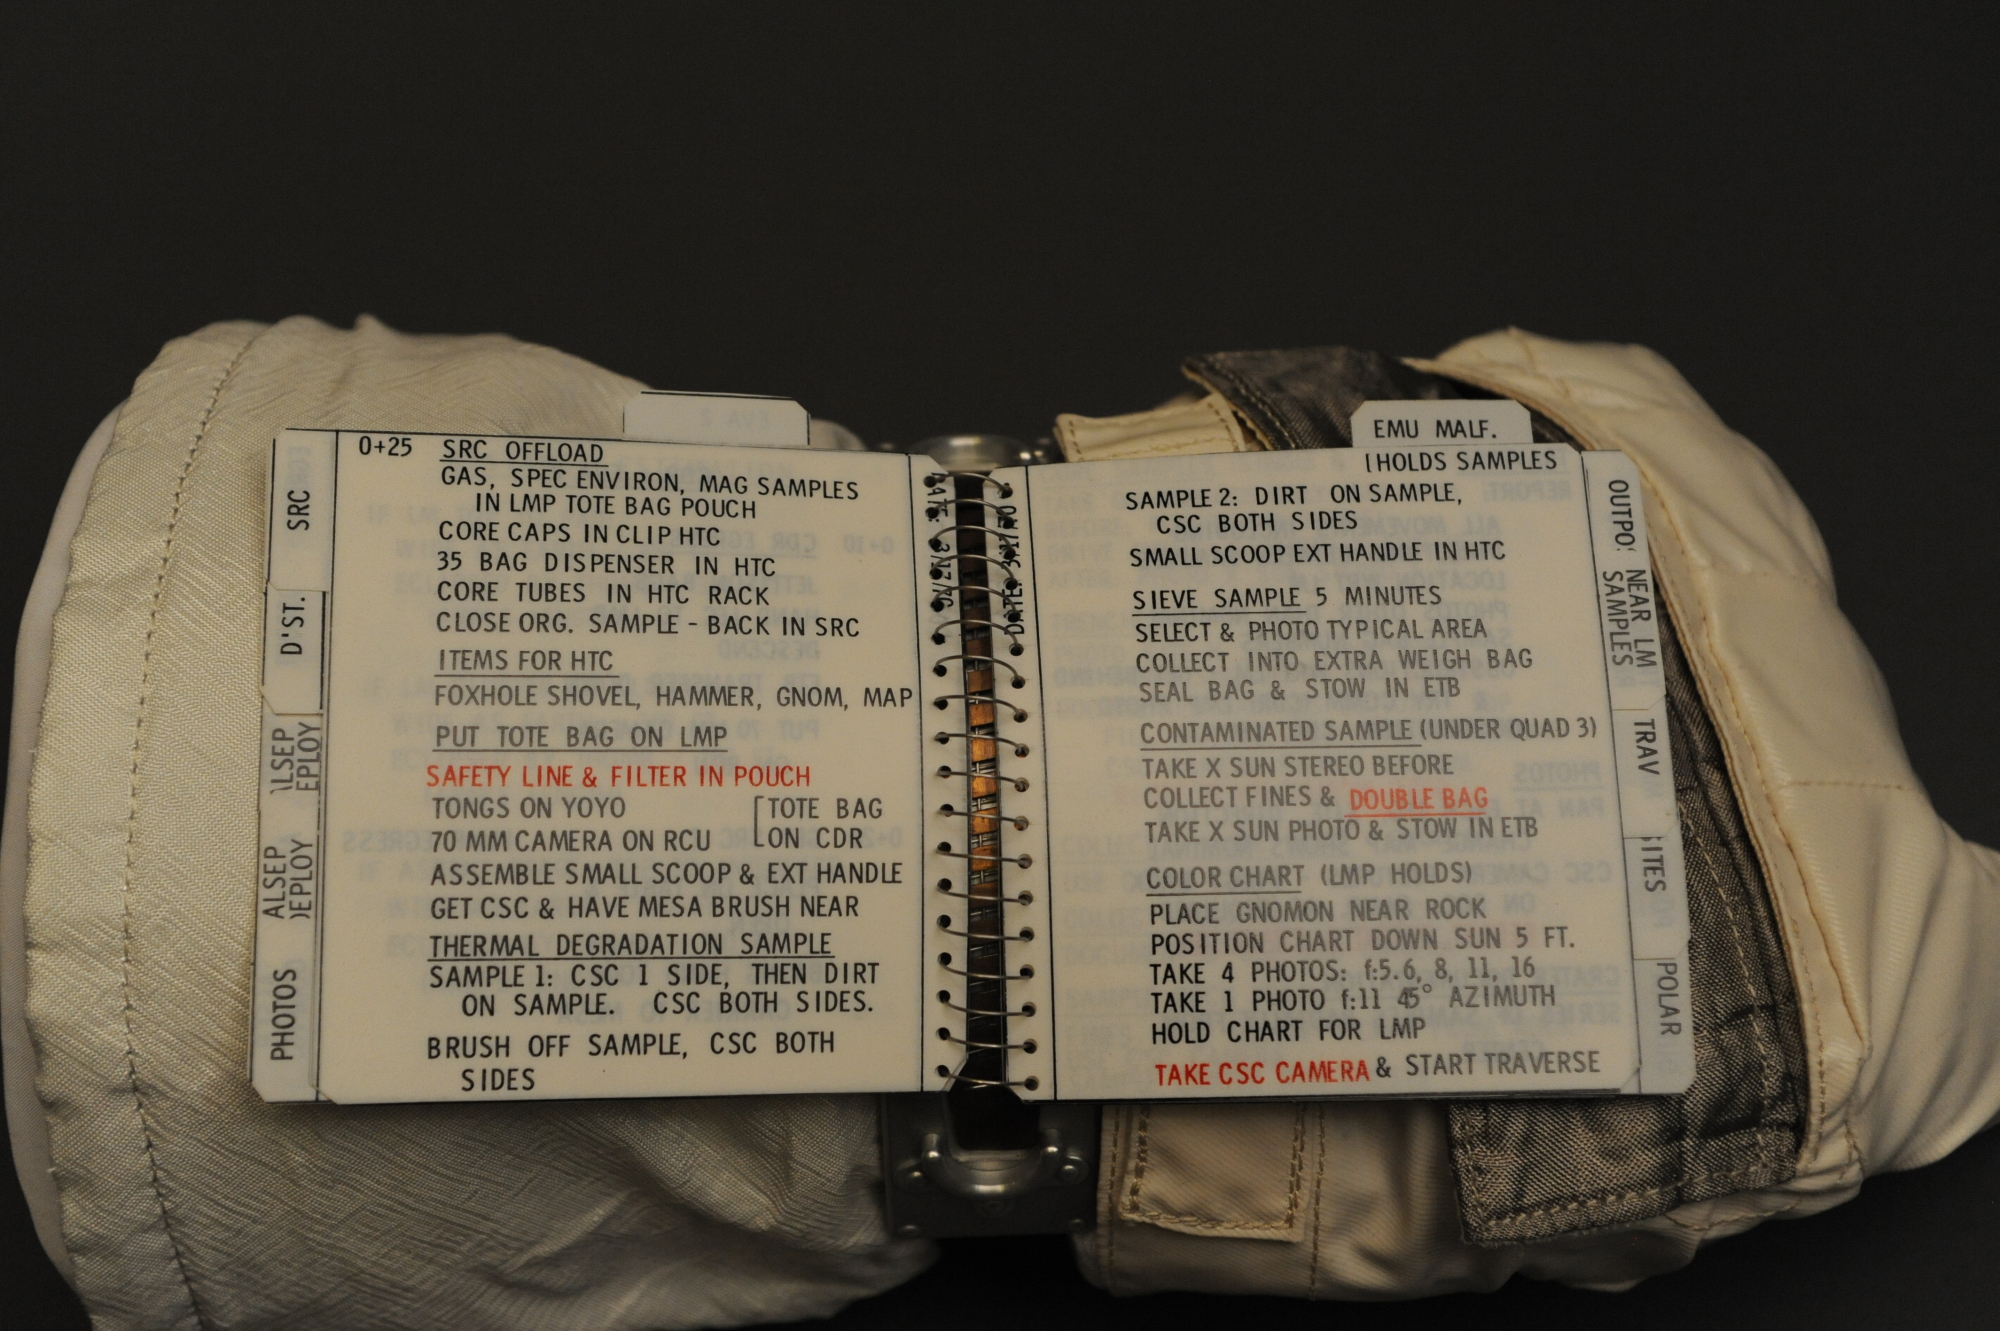 SRC
D'ST.
PHOTOS
0+25 SRC OFFLOAD
GAS, SPEC ENVIRON, MAG SAMPLES
IN LMP TOTE BAG POUCH
CORE CAPS IN CLIP HTC
35 BAG DISPENSER IN HTC
CORE TUBES IN HTC RACK
CLOSE ORG. SAMPLE - BACK IN SRC
ITEMS FOR HTC
FOXHOLE SHOVEL, HAMMER, GNOM, MAP
PUT TOTE BAG ON LMP
SAFETY LINE & FILTER IN POUCH
TONGS ON YOYO [TOTE BAG
70 MM CAMERA ON RCU ON CDR
ASSEMBLE SMALL SCOOP & EXT HANDLE
GET CSC & HAVE MESA BRUSH NEAR
THERMAL DEGRADATION SAMPLE
SAMPLE 1: CSC 1 SIDE, THEN DIRT
ON SAMPLE. CSC BOTH SIDES.
BRUSH OFF SAMPLE, CSC BOTH
SIDES
3/17/70
EMU MALF.
HOLDS SAMPLES
SAMPLE 2: DIRT ON SAMPLE,
CSC BOTH SIDES
SMALL SCOOP EXT HANDLE IN HTC
SIEVE SAMPLE 5 MINUTES
SELECT & PHOTO TYPICAL AREA
COLLECT INTO EXTRA WEIGH BAG
SEAL BAG & STOW IN ETB
CONTAMINATED SAMPLE (UNDER QUAD 3)
TAKE X SUN STEREO BEFORE
COLLECT FINES & DOUBLE BAG
TAKE X SUN PHOTO & STOW IN ETB
COLOR CHART (LMP HOLDS)
PLACE GNOMON NEAR ROCK
POSITION CHART DOWN SUN 5 FT.
TAKE 4 PHOTOS: f:5.6, 8, 11, 16
TAKE 1 PHOTO f:11 45° AZIMUTH
HOLD CHART FOR LMP
TAKE CSC CAMERA & START TRAVERSE
DATE: 3/17/70
NEAR LM
SAMPLES
TRAV
POLAR